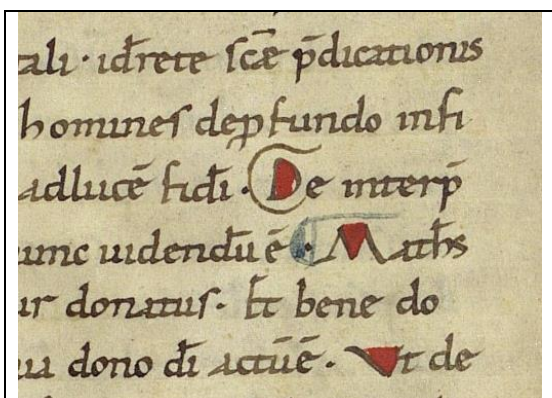 ali · id̄rete scǣ p̄dicationis
homines deꝓfundo infi
adlucē fid̄i . De interp̄
unc uidendū ē · Math̄s
ur donatus . Et bene do
ia dono d̄i actū ē . Vt de